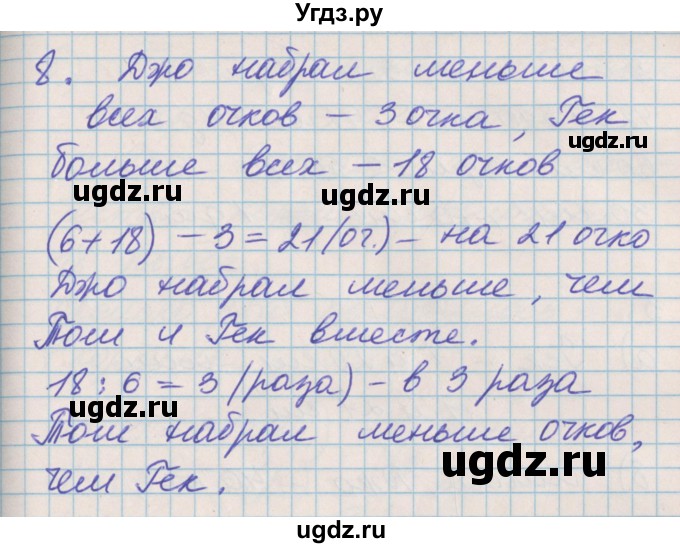 Угдз.ру
8. Джо набрал меньше
gdz.ru
всех очков – 3 очка, Гек
gdz.ru
больше всех – 18 очков
ugdz.ru ugdz.ru
(6+18) – 3 = 21 (оч.) – на 21 очко
Джо набрал меньше, чем
Том и Гек вместе.
18 : 6 = 3 (раза) – в 3 раза
ugdz.ru
Том набрал меньше очков,
ugdz.ru
чем Гек.
ugdz.ru